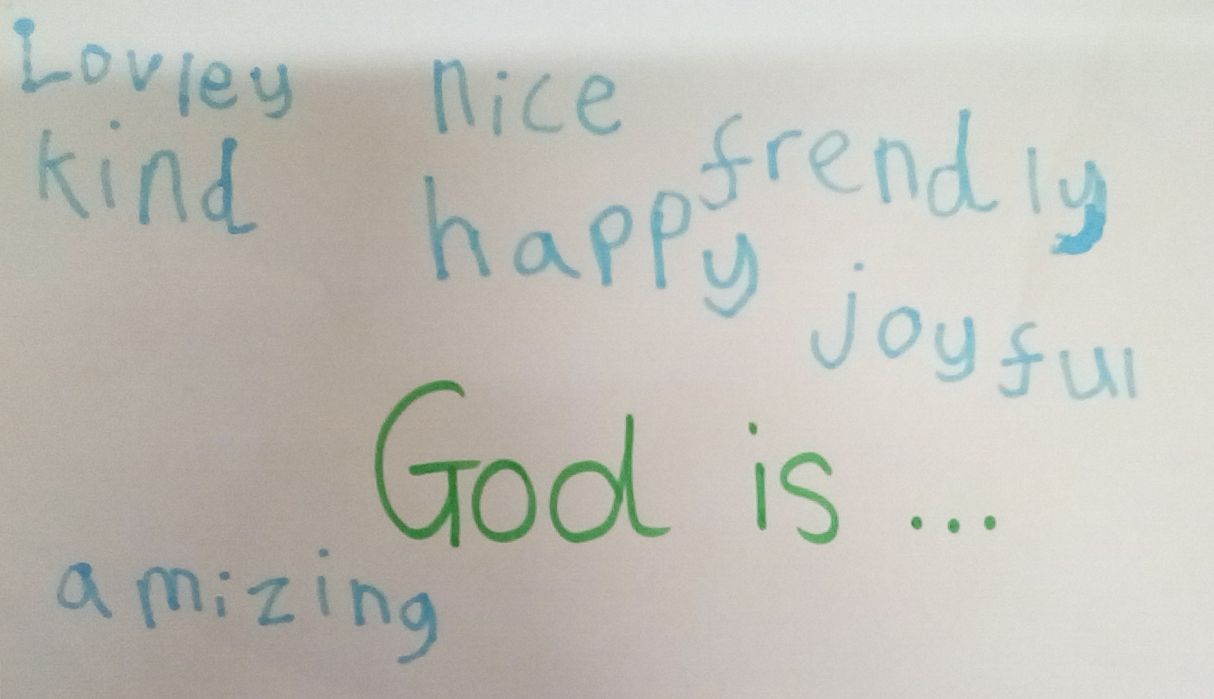 Lovley
nice
frendly
kind
happy
joyful
God is ...
amizing